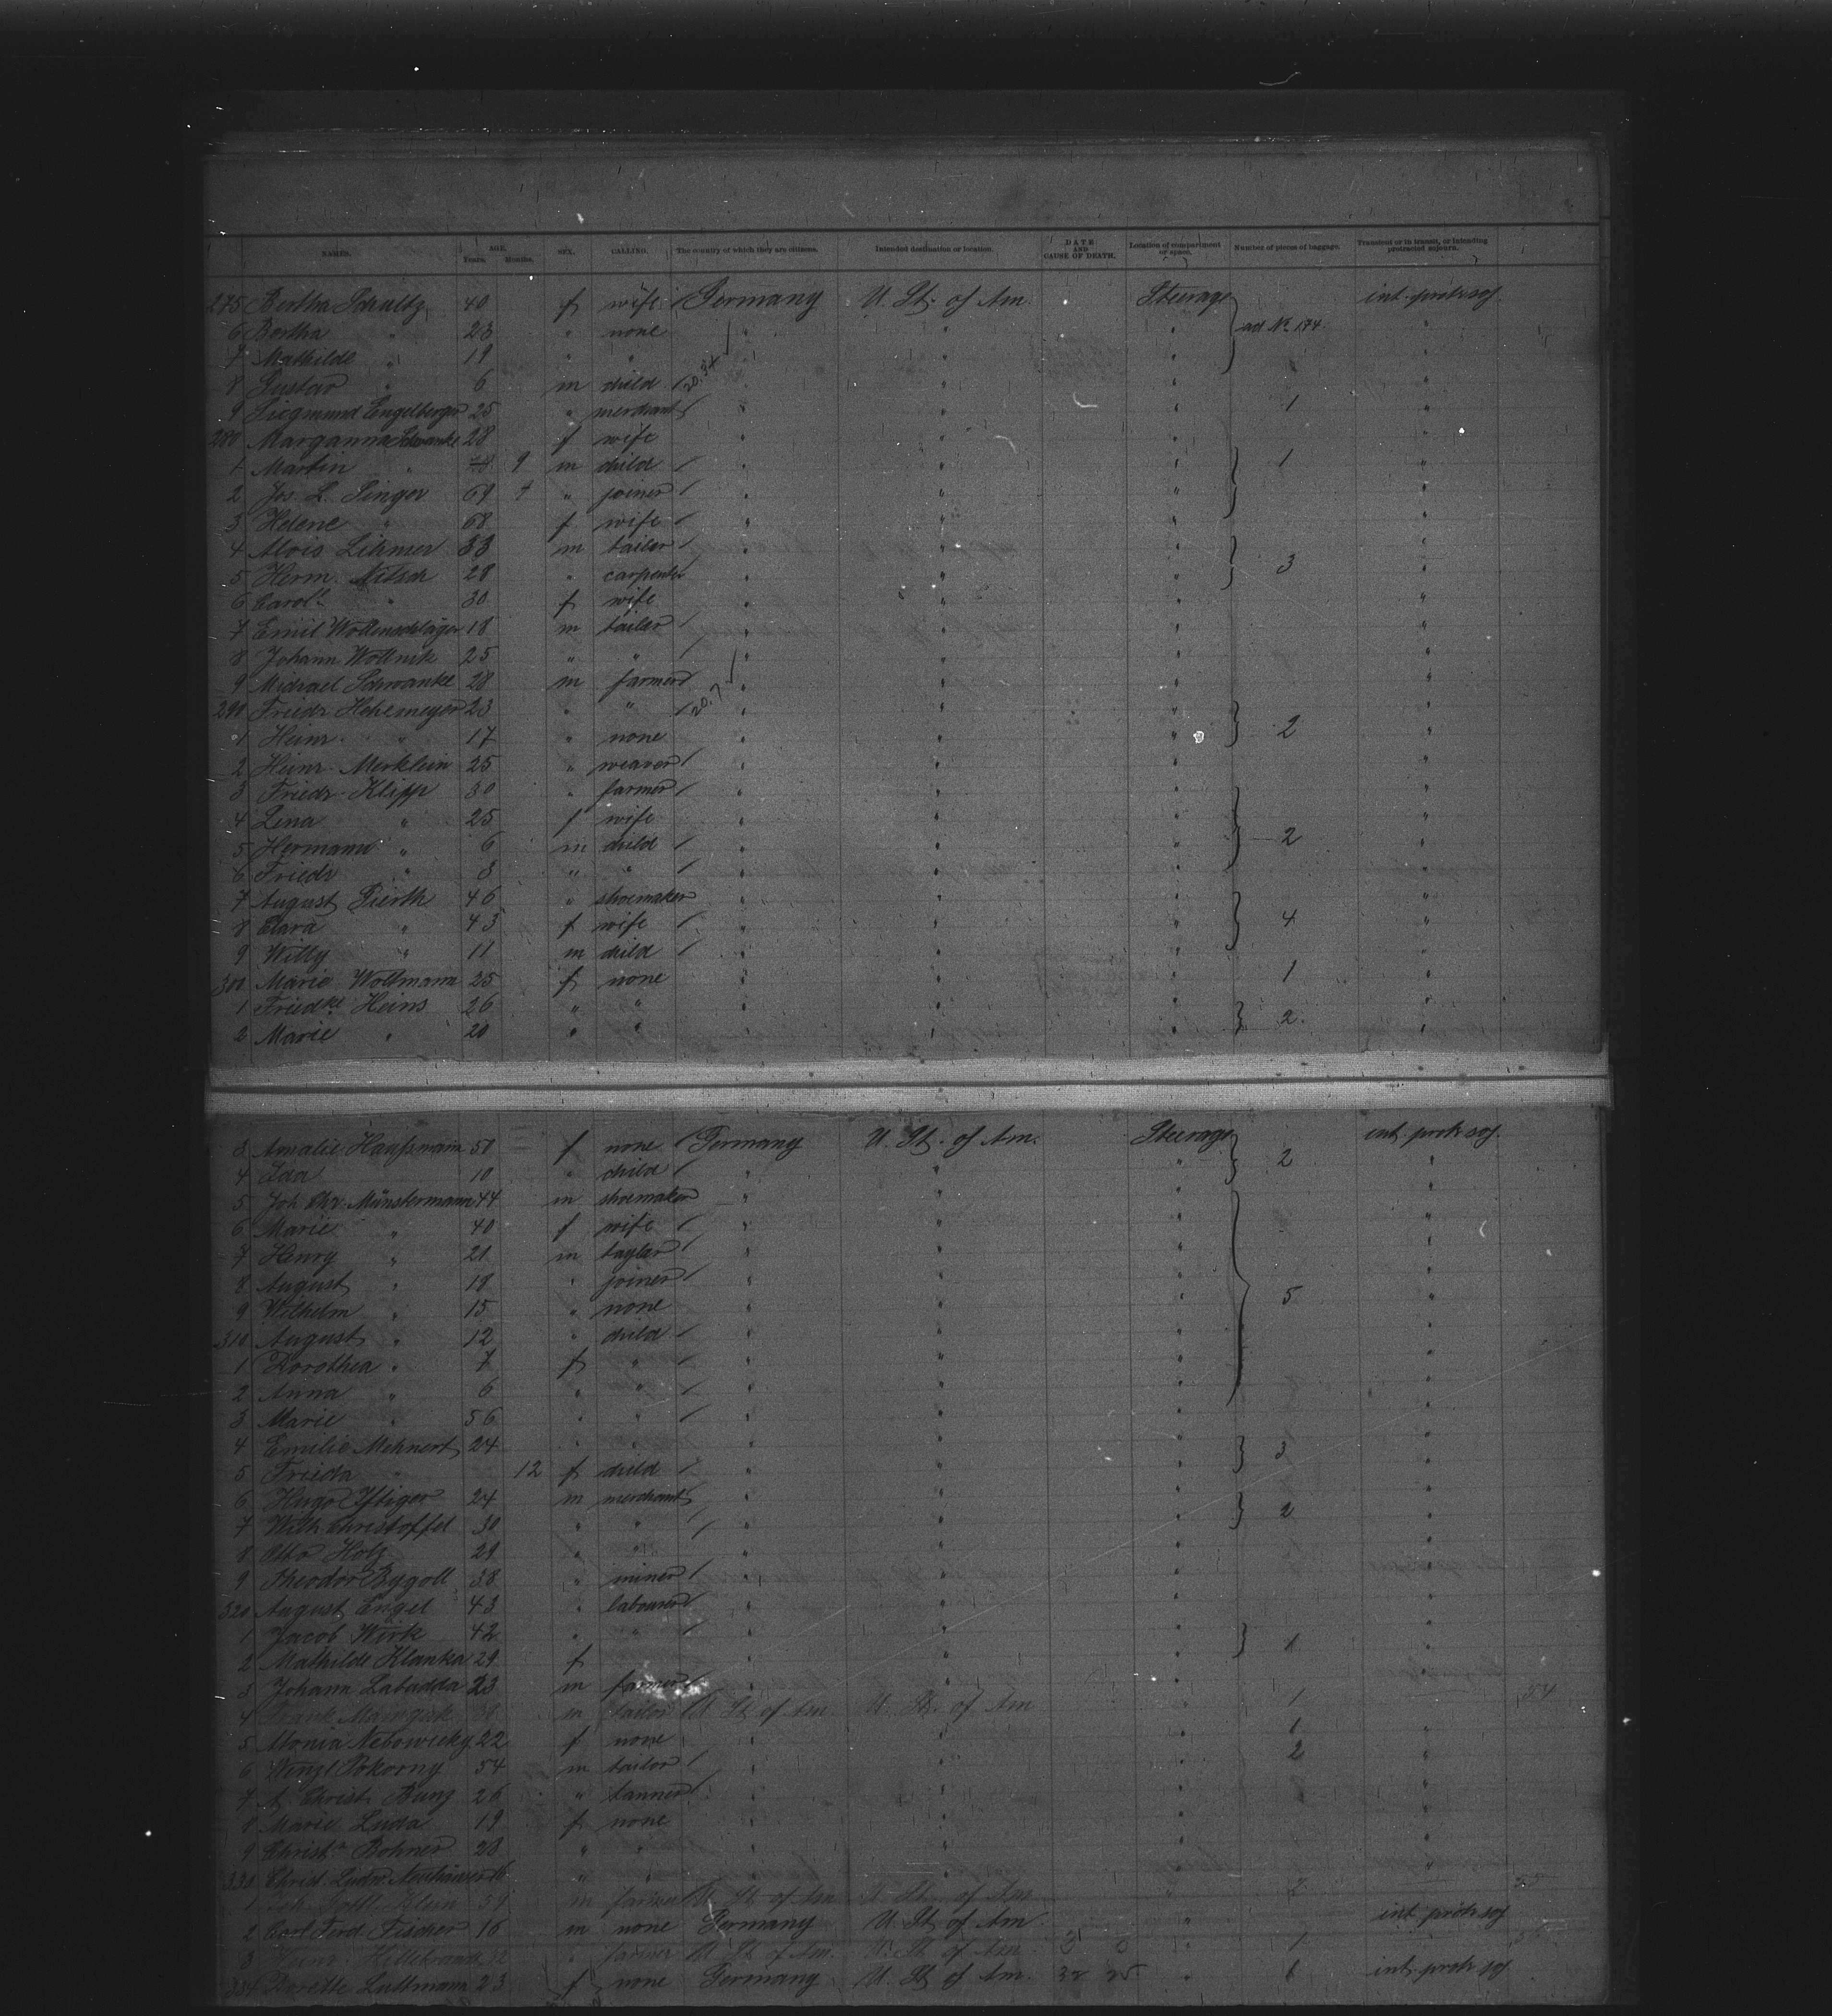 NAMES. AGE. Years. Months. SEX. CALLING. The country of which they are citizens. Intended destination or location. DATE AND CAUSE OF DEATH. Location of compartment or space. Number of pieces of baggage. Transient or in transit, or intending protracted sojourn.
275 Bertha Schultz 40 f wife Germany U. St. of Am. Steerage int. protr. soj
6 Bertha " 23 " none " " " ad No 174 "
7 Mathilde " 19 " " " " "
8 Gustav " 6 m child 20.34 " " "
9 Siegmund Engelberger 25 " merchant " " " 1 "
280 Marganna Schwanke 28 f wife " " " "
1 Martin " 9 m child " " " 1 "
2 Jos. L. Singer 69 " joiner " " " "
3 Helene " 68 f wife " " " "
4 Alois Lihmer 33 m tailor " " " "
5 Herm. Nitsch 28 " carpenter " " " 3 "
6 Carol. " 30 f wife " " " "
7 Emil Wollenschläger 18 m tailor " " " "
8 Johann Wollnik 25 " " " " " "
9 Michael Schwanke 28 m farmer " " " "
290 Friedr Hehemeyer 23 " " 20.7 " " " "
1 Heinr. " 17 " none " " " 2 "
2 Heinr. Merklein 25 " weaver " " " "
3 Friedr. Klipp 30 " farmer " " " "
4 Lena " 25 f wife " " " "
5 Hermann " 6 m child " " " 2 "
6 Friedr " 8 " " " " " "
7 August Pierth 46 " shoemaker " " " "
8 Clara " 43 f wife " " " 4 "
9 Willy " 11 m child " " " "
300 Marie Woltmann 25 f none " " " 1 "
1 Friedke Heins 26 " " " " " "
2 Marie " 20 " " " " " 2 "
3 Amalie Haussmann 50 f none Germany U. St. of Am. Steerage int. protr. soj
4 Ida 10 " child " " 2 "
5 Joh Chr. Münstermann 44 m shoemaker " " " "
6 Marie " 40 f wife " " " "
7 Henry " 21 m tayler " " " "
8 August " 18 " joiner " " " "
9 Wilhelm " 15 " none " " " 5 "
310 August " 12 " child " " " "
1 Dorothea " 7 f " " " " "
2 Anna " 6 " " " " " "
3 Marie " 56 " " " " " "
4 Emilie Mehnert 24 " " " " " "
5 Frieda " 12 f child " " " 3 "
6 Hugo 24 m merchant " " " "
7 Wilh Christoffel 30 " " " " " 2 "
8 Otto Holz 29 " " " " " "
9 Theodor Bygoll 38 " miner " " " "
320 August Engel 43 " labourer " " " "
1 Jacob Wirk 42 " " " " " "
2 Mathilde Klanka 29 f " " " 1 "
3 Johann Labadda 23 m farmer " " " "
4 Frank m tailor U St of Am. U. St. of Am 1 54
5 Monia Nebowicky 22 f none " " " 1 "
6 Wenzl Pokorny 54 m tailor " " " 2 "
7 Christ. Bunz 26 " tanner " " " "
8 Marie Luda 19 f none " " " "
9 Christ. Bohner 28 " " " " " "
330 Christ. Ludw. Neuhäuser 16 " " " " " "
1 Klein 59 m farmer U. St of Am U St. of Am " 2
2 Carl Ferd. Fischer 16 m none Germany U. St of Am " int protr soj
3 Hillebrandt " farmer U St of Am. U. St of Am " 1
334 Dorette Luttmann 23 f none Germany U. St of Am. " int. protr soj